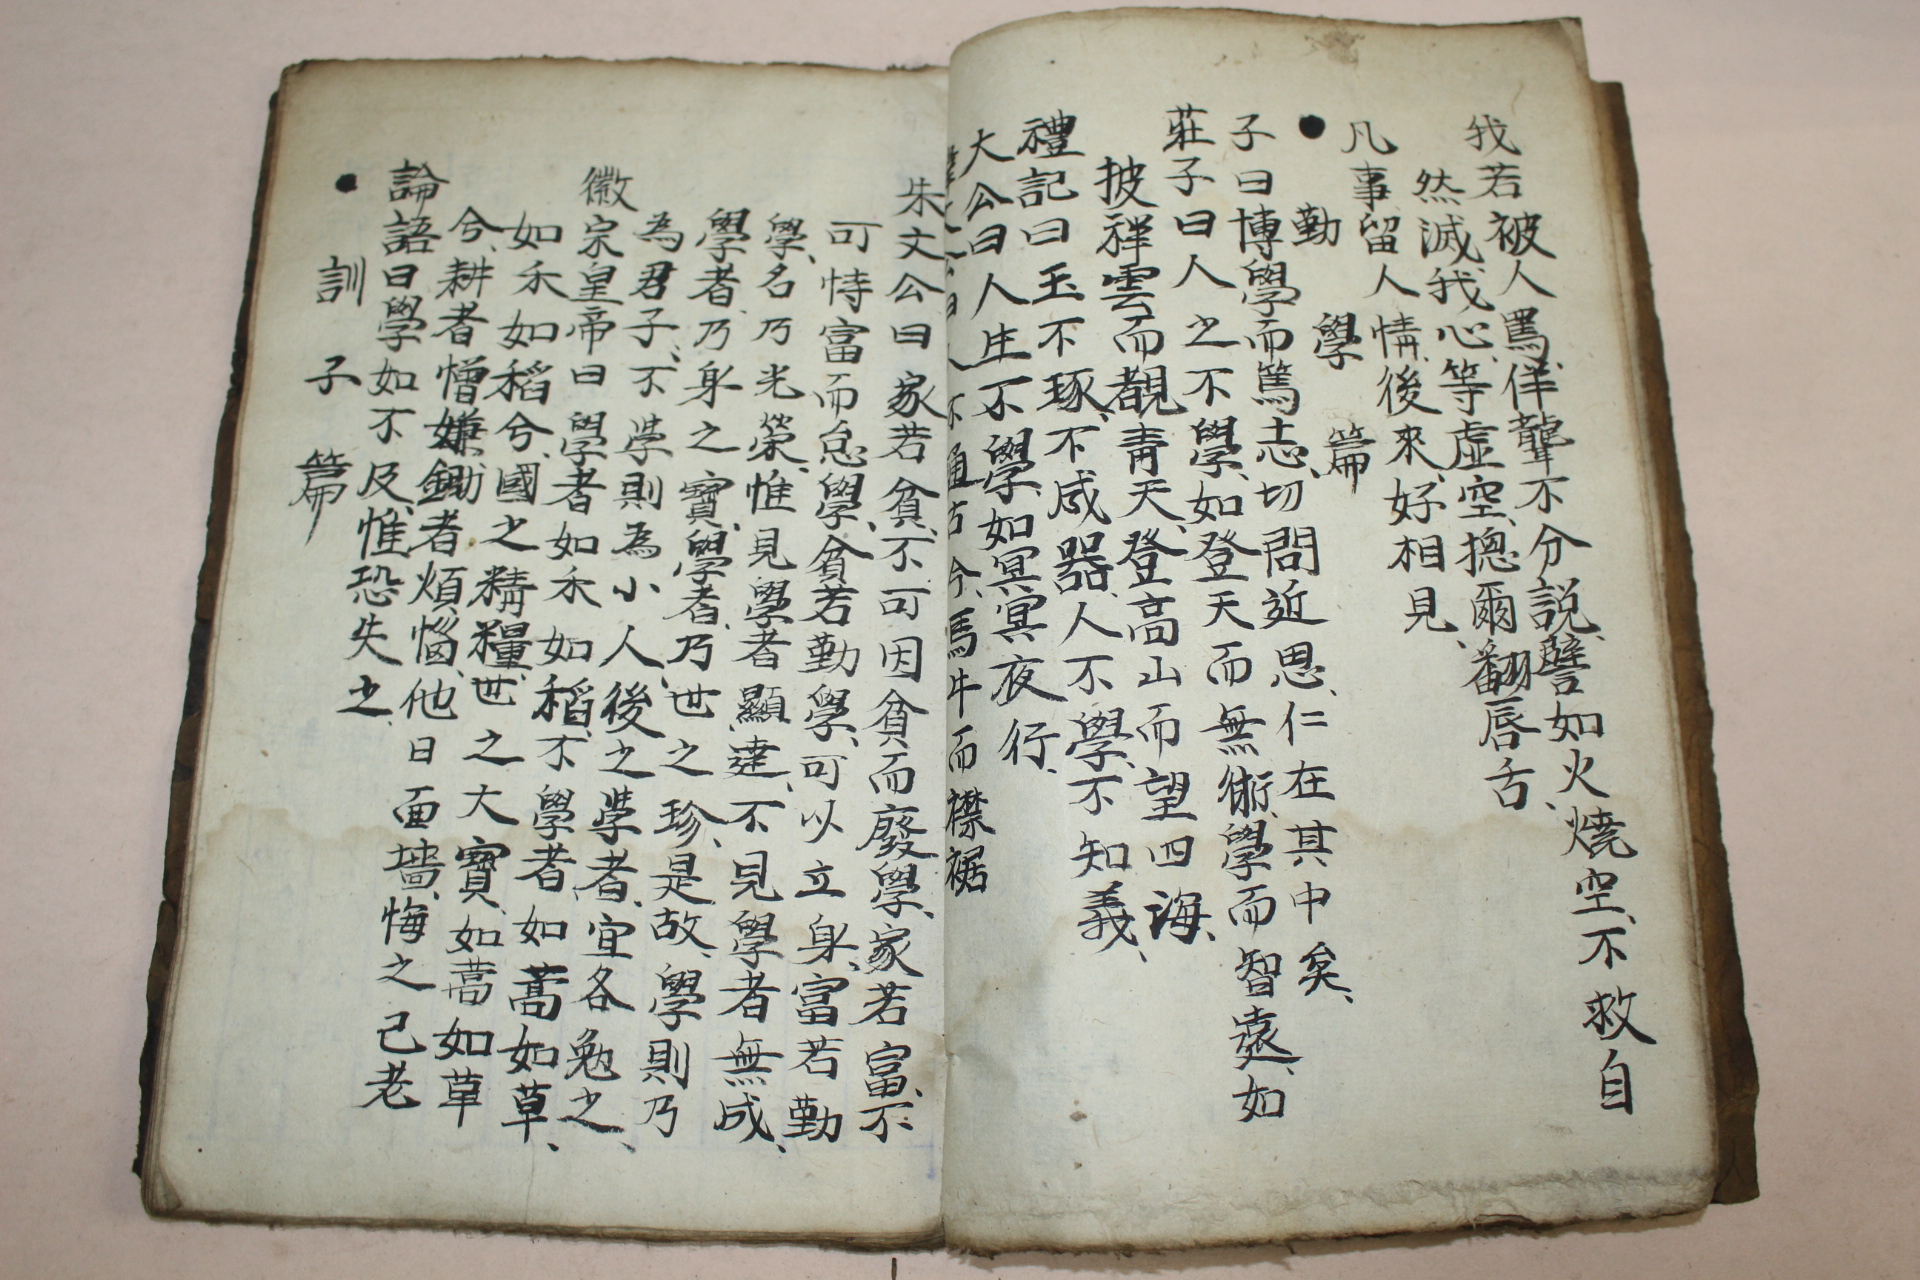 我若被人罵佯聾不分説譬如火燒空不救自
然滅我心等虛空摠爾翻唇舌
凡事留人情後來好相見
● 勤學篇
子曰博學而篤志切問近思仁在其中矣
莊子曰人之不學如登天而無術學而智遠如
披祥雲而覩青天登高山而望四海
禮記曰玉不琢不成器人不學不知義
大公曰人生不學如冥冥夜行
韓文公曰人不通古今馬牛而襟裾
朱文公曰家若貧不可因貧而廢學家若富不
可恃富而怠學貧若勤學可以立身富若勤
學名乃光榮惟見學者顯達不見學者無成
學者乃身之寶學者乃世之珍是故學則乃
為君子不学則為小人後之学者宜各勉之
徽宗皇帝曰學者如禾如稻不學者如蒿如草
如禾如稻兮國之精糧世之大寶如蒿如草
兮耕者憎嫌鋤者煩惱他日面墻悔之己老
論語曰學如不及惟恐失之
● 訓子篇